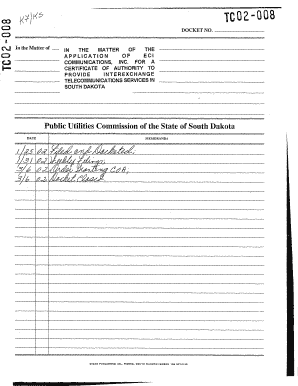 K7/KS
TC02-008
TC02-008
DOCKET NO.
In the Matter of
IN THE MATTER OF THE
APPLICATION OF ECI
COMMUNICATIONS, INC. FOR A
CERTIFICATE OF AUTHORITY TO
PROVIDE INTEREXCHANGE
TELECOMMUNICATIONS SERVICES IN
SOUTH DAKOTA
Public Utilities Commission of the State of South Dakota
DATE MEMORANDA
1/25 02 Filed and Docketed;
1/31 02 Weekly Filing;
3/6 02 Order Granting COA;
3/6 02 Docket Closed